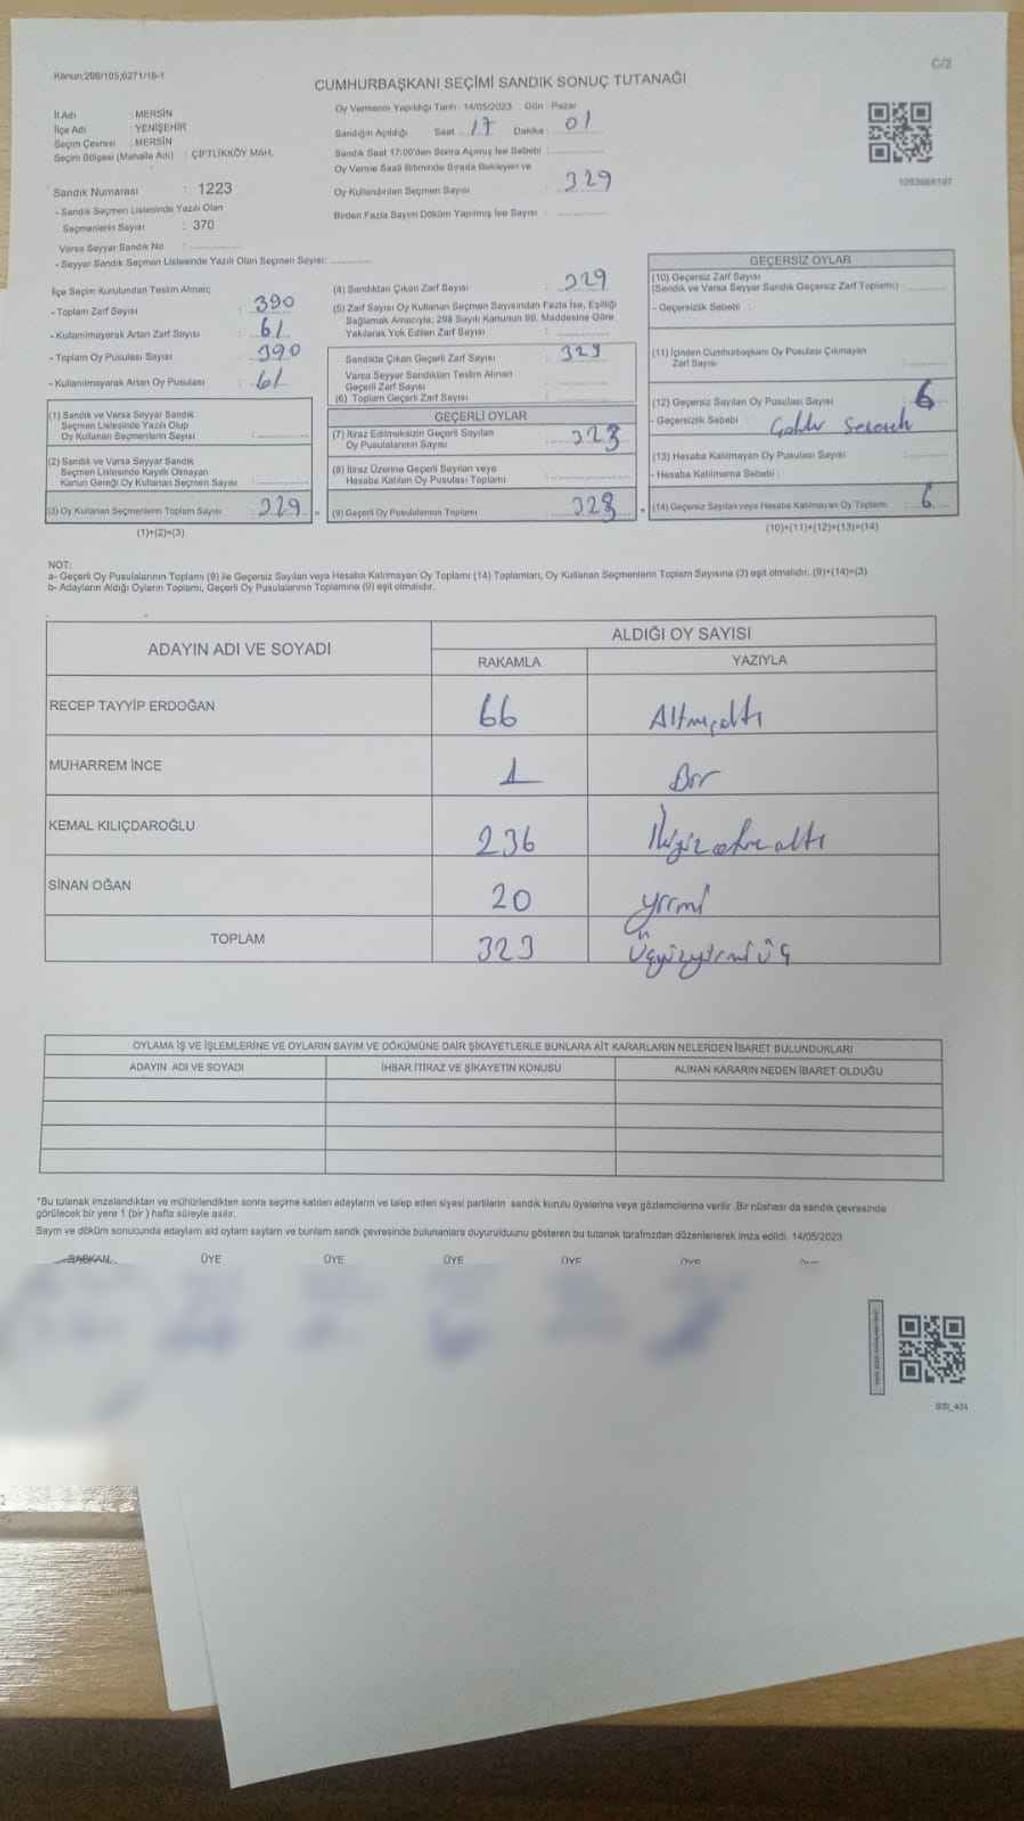 Kanun:298/105;6271/16-1
C/2
CUMHURBAŞKANI SEÇİMİ SANDIK SONUÇ TUTANAĞI
İl Adı : MERSİN
İlçe Adı : YENİŞEHİR
Seçim Çevresi : MERSİN
Seçim Bölgesi (Mahalle Adı) : ÇİFTLİKKÖY MAH.
Oy Vermenin Yapıldığı Tarih : 14/05/2023 Gün : Pazar
Sandığın Açıldığı Saat : 17 Dakika : 01
Sandık Saat 17:00'den Sonra Açılmış İse Sebebi :
Oy Verme Saati Bitiminde Sırada Bekleyen ve
Oy Kullandırılan Seçmen Sayısı : 329
Birden Fazla Sayım Döküm Yapılmış İse Sayısı :
Sandık Numarası : 1223
- Sandık Seçmen Listesinde Yazılı Olan
Seçmenlerin Sayısı : 370
Varsa Seyyar Sandık No :
- Seyyar Sandık Seçmen Listesinde Yazılı Olan Seçmen Sayısı:
İlçe Seçim Kurulundan Teslim Alınan;
- Toplam Zarf Sayısı : 390
- Kullanılmayarak Artan Zarf Sayısı : 61
- Toplam Oy Pusulası Sayısı : 390
- Kullanılmayarak Artan Oy Pusulası : 61
(1) Sandık ve Varsa Seyyar Sandık
Seçmen Listesinde Yazılı Olup
Oy Kullanan Seçmenlerin Sayısı :
(2) Sandık ve Varsa Seyyar Sandık
Seçmen Listesinde Kayıtlı Olmayan
Kanun Gereği Oy Kullanan Seçmen Sayısı :
(3) Oy Kullanan Seçmenlerin Toplam Sayısı : 329
(1)+(2)=(3)
(4) Sandıktan Çıkan Zarf Sayısı : 329
(5) Zarf Sayısı Oy Kullanan Seçmen Sayısından Fazla İse, Eşitliği
Sağlamak Amacıyla; 298 Sayılı Kanunun 98. Maddesine Göre
Yakılarak Yok Edilen Zarf Sayısı :
Sandıkta Çıkan Geçerli Zarf Sayısı : 329
Varsa Seyyar Sandıktan Teslim Alınan
Geçerli Zarf Sayısı :
(6) Toplam Geçerli Zarf Sayısı :
GEÇERLİ OYLAR
(7) İtiraz Edilmeksizin Geçerli Sayılan
Oy Pusulalarının Sayısı : 323
(8) İtiraz Üzerine Geçerli Sayılan veya
Hesaba Katılan Oy Pusulası Toplamı :
(9) Geçerli Oy Pusulalarının Toplamı : 323
GEÇERSİZ OYLAR
(10) Geçersiz Zarf Sayısı
(Sandık ve Varsa Seyyar Sandık Geçersiz Zarf Toplamı) :
- Geçersizlik Sebebi :
(11) İçinden Cumhurbaşkanı Oy Pusulası Çıkmayan
Zarf Sayısı :
(12) Geçersiz Sayılan Oy Pusulası Sayısı : 6
- Geçersizlik Sebebi :
(13) Hesaba Katılmayan Oy Pusulası Sayısı :
- Hesaba Katılmama Sebebi :
(14) Geçersiz Sayılan veya Hesaba Katılmayan Oy Toplamı : 6
(10)+(11)+(12)+(13)=(14)
NOT:
a- Geçerli Oy Pusulalarının Toplamı (9) ile Geçersiz Sayılan veya Hesaba Katılmayan Oy Toplamı (14) Toplamları, Oy Kullanan Seçmenlerin Toplam Sayısına (3) eşit olmalıdır. (9)+(14)=(3)
b- Adayların Aldığı Oyların Toplamı, Geçerli Oy Pusulalarının Toplamına (9) eşit olmalıdır.
ADAYIN ADI VE SOYADI
ALDIĞI OY SAYISI
RAKAMLA YAZIYLA
RECEP TAYYİP ERDOĞAN 66 Altmışaltı
MUHARREM İNCE 1 Bir
KEMAL KILIÇDAROĞLU 236 İkiyüzotuzaltı
SİNAN OĞAN 20 yirmi
TOPLAM 323 Üçyüzyirmiüç
OYLAMA İŞ VE İŞLEMLERİNE VE OYLARIN SAYIM VE DÖKÜMÜNE DAİR ŞİKAYETLERLE BUNLARA AİT KARARLARIN NELERDEN İBARET BULUNDUKLARI
ADAYIN ADI VE SOYADI İHBAR İTİRAZ VE ŞİKAYETİN KONUSU ALINAN KARARIN NEDEN İBARET OLDUĞU
*Bu tutanak imzalandıktan ve mühürlendikten sonra seçime katılan adayların ve talep eden siyasi partilerin sandık kurulu üyelerine veya gözlemcilerine verilir. Bir nüshası da sandık çevresinde
görülecek bir yere 1 (bir ) hafta süreyle asılır.
Sayım ve döküm sonucunda adayların ald oyların sayıların ve bunların sandık çevresinde bulunanlara duyurulduunu gösteren bu tutanak tarafımızdan düzenlenerek imza edildi. 14/05/2023
BAŞKAN ÜYE ÜYE ÜYE ÜYE ÜYE